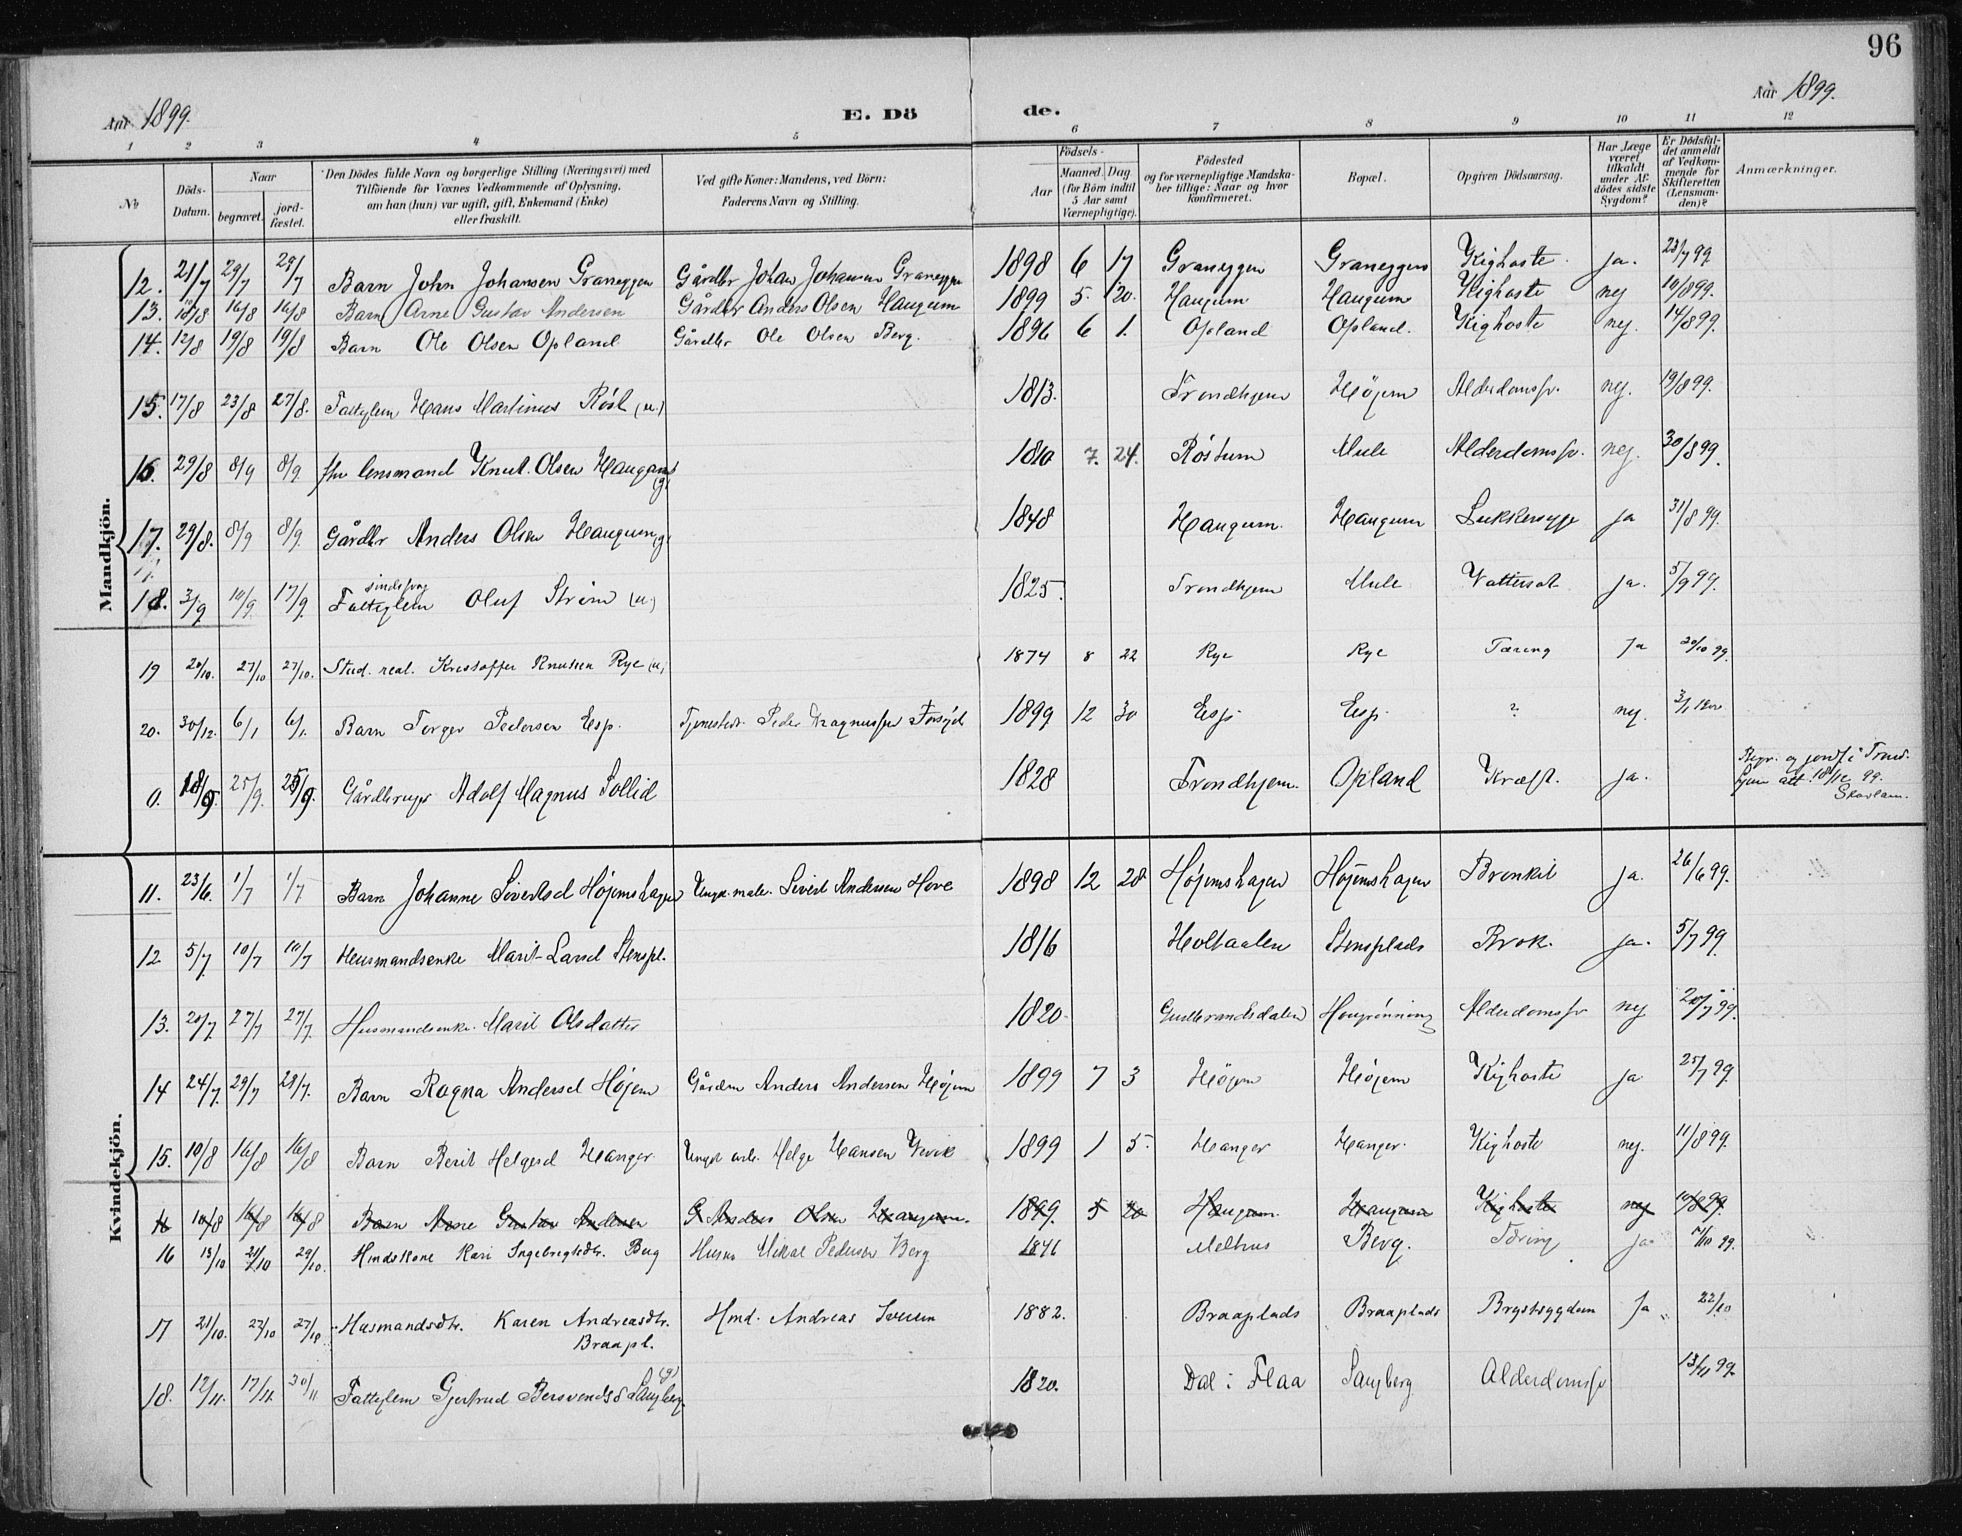 96
Aar 1899.
E. Döde.
Aar 1899.
1 2 3 4 5 6 7 8 9 10 11 12
No
Döds-Datum.
Naar
begravet.
jord-fæstet.
Den Dödes fulde Navn og borgerlige Stilling (Næringsvei) med
Tilföiende for Voxnes Vedkommende af Oplysning,
om han (hun) var ugift, gift, Enkemand (Enke)
eller fraskilt.
Ved gifte Koner: Mandens, ved Börn:
Faderens Navn og Stilling.
Födsels-
Aar
Maaned. Dag
(for Börn indtil
5 Aar samt
Værnepligtige).
Födested
og for værnepligtige Mandska-
ber tillige: Naar og hvor
konfirmeret.
Bopæl.
Opgiven Dödsaarsag.
Har Læge
været
tilkaldt
under Af-
dödes sidste
Sygdom?
Er Dödsfal-
det anmeldt
af Vedkom-
mende for
Skifteretten
(Lensman-
den)?
Anmærkninger.
Mandkjön.
12. 21/7 29/7 29/7 Barn John Johansen Graneggen Gårdbr Johan Johansen Graneggen 1898 6 17 Graneggen Graneggen Kighoste. ja. 23/7 99
13. 10/8 16/8 16/8 Barn Arne Gustav Andersen Gårdbr Anders Olsen Haugum 1899 5. 20. Haugum Haugum Kighoste nej 10/8 99.
14. 12/8 19/8 19/8 Barn Ole Olsen Opland Gårdbr Ole Olsen Berg. 1896 6 1. Opland Opland. Kighoste nej. 14/8 99.
15. 17/8 23/8 27/8. Fattiglem Hans Martinus Röst (u.) 1813. Trondhjem Höjem Alderdomssv. nej. 19/8 99.
16. 29/8 8/9 8/9. fhv lensmand Knut Olsen Haugum (g) 1810 7. 24. Röstum Mule Alderdomssv. nej. 30/8 99.
17. 29/8. 8/9 8/9. Gårdbr Anders Olsen Haugum (g) 1848 Haugum. Haugum Sukkersyge ja 31/8 99.
18. 3/9 10/9. 17/9. sindssvag Fattiglem Oluf Ström (u) 1825. Trondhjem Mule Vattersot ja. 5/9 99.
19 20/10. 27/10 27/10. Stud. real. Kristoffer Knutsen Rye (u) 1874 8 22 Rye Rye Tæring Ja 20/10 99.
20. 30/12. 6/1 6/1. Barn Torger Pedersen Esp. Tjenestedr. Peder Magnussen 1899 12 30 Esp Esp. ? nej. 3/1 1900
0. 18/9. 25/9. 25/9. Gårdbruger Adolf Magnus Sollid 1828 Trondhjem. Opland Kræft. ja. Begr. og jordf. i Trond-
hjem att. 18/12 99.
Skavlan.
Kvindekjön.
11. 23/6. 1/7 1/7 Barn Johanne Sivertsd Höjemshagen Ungk. maler. Sivert Andersen Hove 1898 12 28 Höjemshagen Höjemshagen Bronkit ja. 26/6 99.
12. 5/7 10/7 10/7 Husmandsenke Marit Larsd Stenspl. 1816 Holtaalen Stensplads Brok. ja. 5/7 99.
13. 20/7. 27/7 27/7. Husmandsenke. Marit Olsdatter 1820 Gudbrandsdalen Haugrönning Alderdomssv nej 20/7 99.
14 24/7. 29/7 29/7. Barn Ragna Andersd Höjem Gårdm Anders Andersen Höjem 1899 7 3 Höjem Höjem Kighoste ja 25/7 99.
15. 10/8 16/8 16/8 Barn Berit Helgesd Hanger Ungk arb. Helge Hansen Kvik 1899 1 5. Hanger Hanger. Kighoste nej. 11/8 99.
16 10/8 16/8 16/8 Barn Arne Gustav Andersen G Anders Olsen Haugum. 1899. 5 20 Haugum. Haugum Kighoste nej 10/8 99.
16 18/10 29/10 29/10. Hmdskone Kari Ingebrigtsdtr. Berg Husm Mikal Pedersen Berg 1841 Melhus Berg. Tæring Ja 99.
17 21/10. 27/10 27/10 Husmandsdtr. Karen Andreasdtr. Hmd. Andreas Iversen 1882. Braaplads Braaplads Brystsygdom Ja 22/10
Braapl.
18. 12/11. 17/11. 30/11 Fattiglem Gjertrud Bersvendsd Langberg (g) 1820. Dal i Flaa Langberg Alderdomssv 13/11 99.